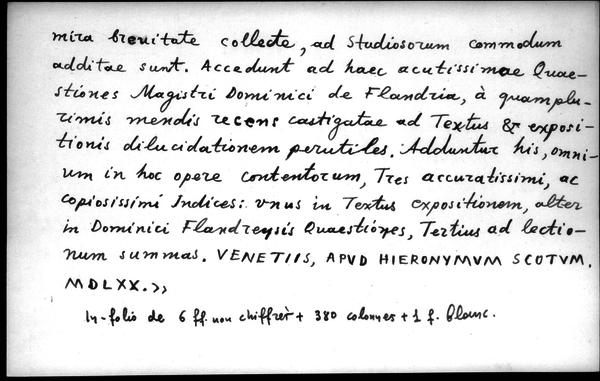 mira breuitate collecte, ad Studiosorum commodum
additae sunt. Accedunt ad haec acutissimae Quae-
stiones Magistri Dominici de Flandria, à quamplu-
rimis mendis recens castigatae ad Textus & exposi-
tionis dilucidationem perutiles. Adduntur his, omni-
um in hoc opere contentorum, Tres accuratissimi, ac
copiosissimi Indices: vnus in Textus expositionem, alter
in Dominici Flandrensis Quaestiones, Tertius ad lectio-
num summas. VENETIIS, APVD HIERONYMVM SCOTVM.
MDLXX.»
In-folio de 6 ff. non chiffrèr + 380 colonnes + 1 f. blanc.